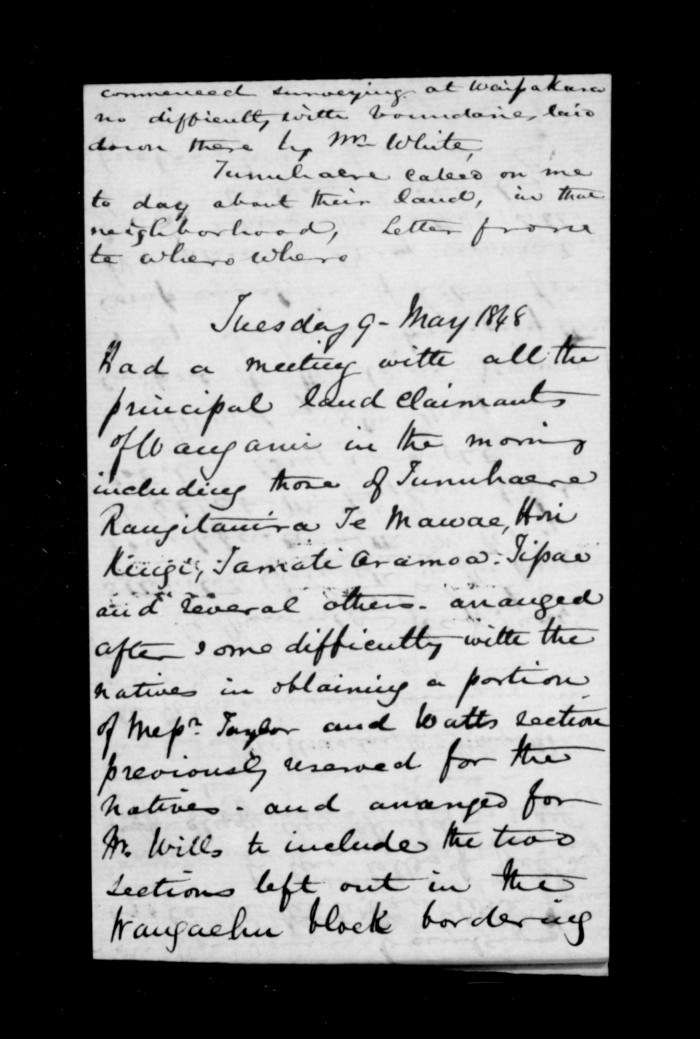 commenced surveying at Waipakura
no difficulty with boundaries laid
down there by Mr White,
Turuhaere called on me
to day about their land, in that
neighborhood, letter from
te whero whero
Tuesday 9 - May 1848
Had a meeting with all the
principal land claimants
of Wanganui in the morning
including those of Turuhaere
Rangitauira Te Mawae, Hori
Kingi, Tamati Aramoa. Tipae
and several others - arranged
after some difficulty with the
natives in obtaining a portion
of Messrs. Taylor and Watts section
previously reserved for the
natives - and arranged for
Mr. Wills to include the two
sections left out in the
Wangaehu block bordering